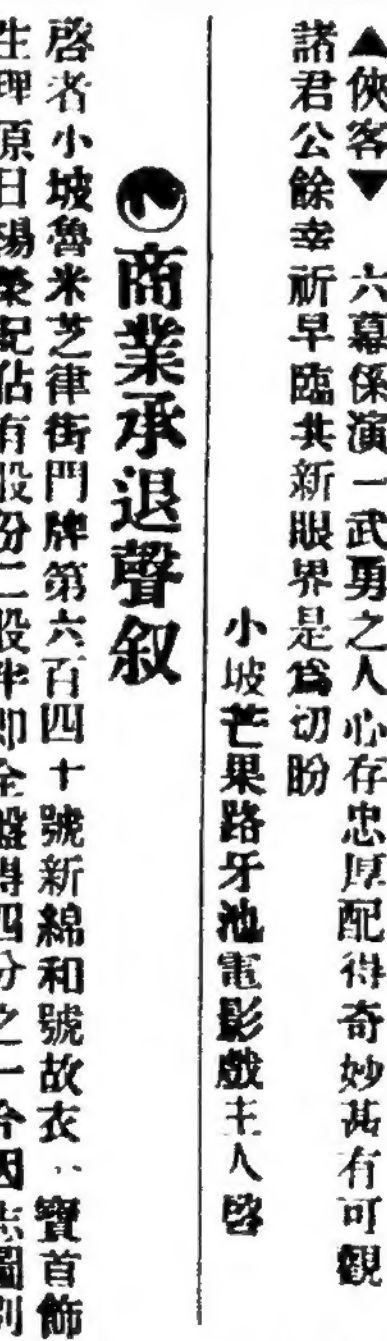 ▲俠客▼　六幕係演一武勇之人心存忠厚配得奇妙甚有可觀
諸君公餘幸祈早臨共新眼界是爲切盼
小坡芒果路牙池電影戲主人啓
商業承退聲叙
啓者小坡魯米芝律街門牌第六百四十號新綿和號故衣寶首飾
生理原日楊榮記佔有股份二股半即全盤得四分之一今因志圖別